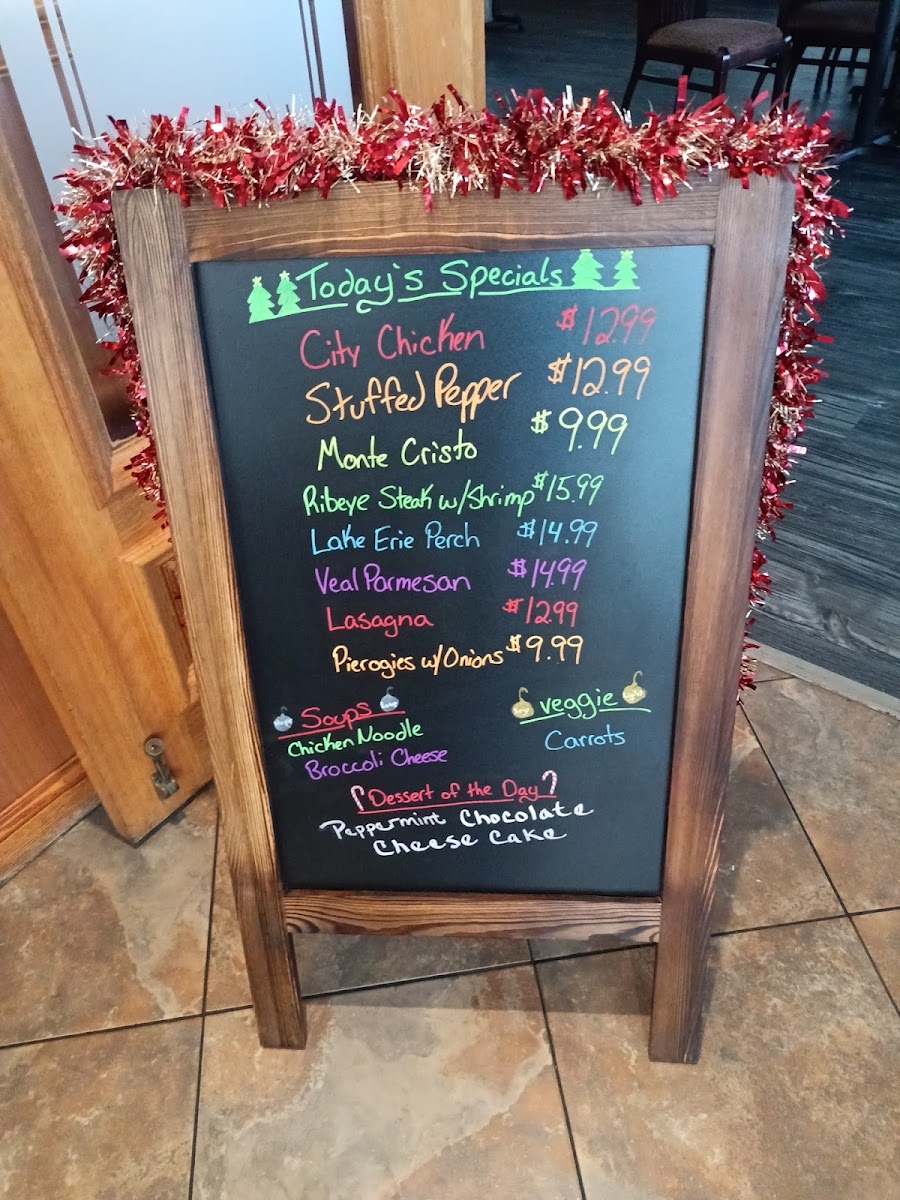 Today's Specials
City Chicken $12.99
Stuffed Pepper $12.99
Monte Cristo $9.99
Ribeye Steak w/Shrimp $15.99
Lake Erie Perch $14.99
Veal Parmesan $14.99
Lasagna $12.99
Pierogies w/Onions $9.99
Soups
Chicken Noodle
Broccoli Cheese
veggie
Carrots
Dessert of the Day
Peppermint Chocolate
Cheese Cake